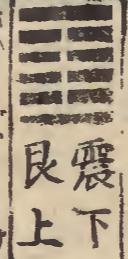 震下
艮上